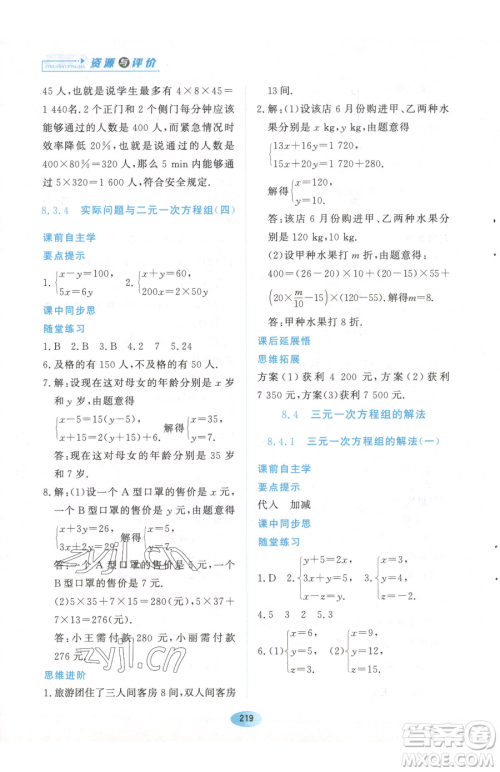 资源与评价
45 人，也就是说学生最多有 4×8×45=
1 440名. 2 个正门和 2 个侧门每分钟应该
能够通过的人数是 400 人，而紧急情况时
效率降低 20%，所以能够通过的人数是
400×80%=320 人，那么 5 min 内能够
通过 5×320=1 600 人，符合安全规定.
8.3.4 实际问题与二元一次方程组(四)
课前自主学
要点提示
1. {x-y=100, 5x=6y 2. {x+y=60, 200x=2×50y
课中同步思
随堂练习
1. B 2. B 3. B 4. 2 7 5. 24
6. 及格的有 150 人，不及格的有 50 人.
7. 解：设现在这对母女的年龄分别是 x 岁
和 y 岁，由题意得
{x-5=15(y-5), x+15=2(y+15)+6. 解得 {x=35, y=7.
答：现在这对母女的年龄分别是 35 岁
和 7 岁.
8. 解：(1)设一个 A 型口罩的售价是 x 元，
一个 B 型口罩的售价是 y 元，由题意得
{x+3y=26, 3x+2y=29. 解得 {x=5, y=7.
答：一个 A 型口罩的售价是 5 元，一个
B 型口罩的售价是 7 元.
(2)5×35+7×15=280(元)，5×13+
7×13+15×8=276(元).
答：小王需付款 280 元，小丽需付款
276 元.
思维进阶
1. 旅游团住了三人间客房 8 间，双人间客房
13 间.
2. 解：(1)设该店 6 月份购进甲、乙两种水
果分别是 x kg，y kg，由题意得
{13x+16y=1 720, 15x+20y=2 100. 解得
{x=120, y=10.
答：该店 6 月份购进甲、乙两种水果分
别是 120 kg，10 kg.
(2)设甲种水果打 m 折，由题意得
400=(26-20)×10+(120-60)×6+
(20×m/10-15)×60. 解得 m=8.
答：甲种水果打 8 折.
课后延展悟
思维拓展
方案(1)获利 4 200 元，方案(2)获利
7 350 元，方案(3)获利 7 500 元.
8.4 三元一次方程组的解法
8.4.1 三元一次方程组的解法(一)
课前自主学
要点提示
代入 加减
课中同步思
随堂练习
1. D 2. {x=4, y=3, z=2. 3. {y+5=2x, x+y=0, x-z=z-y.
4. 5, 3 5. 12
6. (1){x=6, y=5, z=3. (2){x=9, y=8, z=6.
219
答案圈